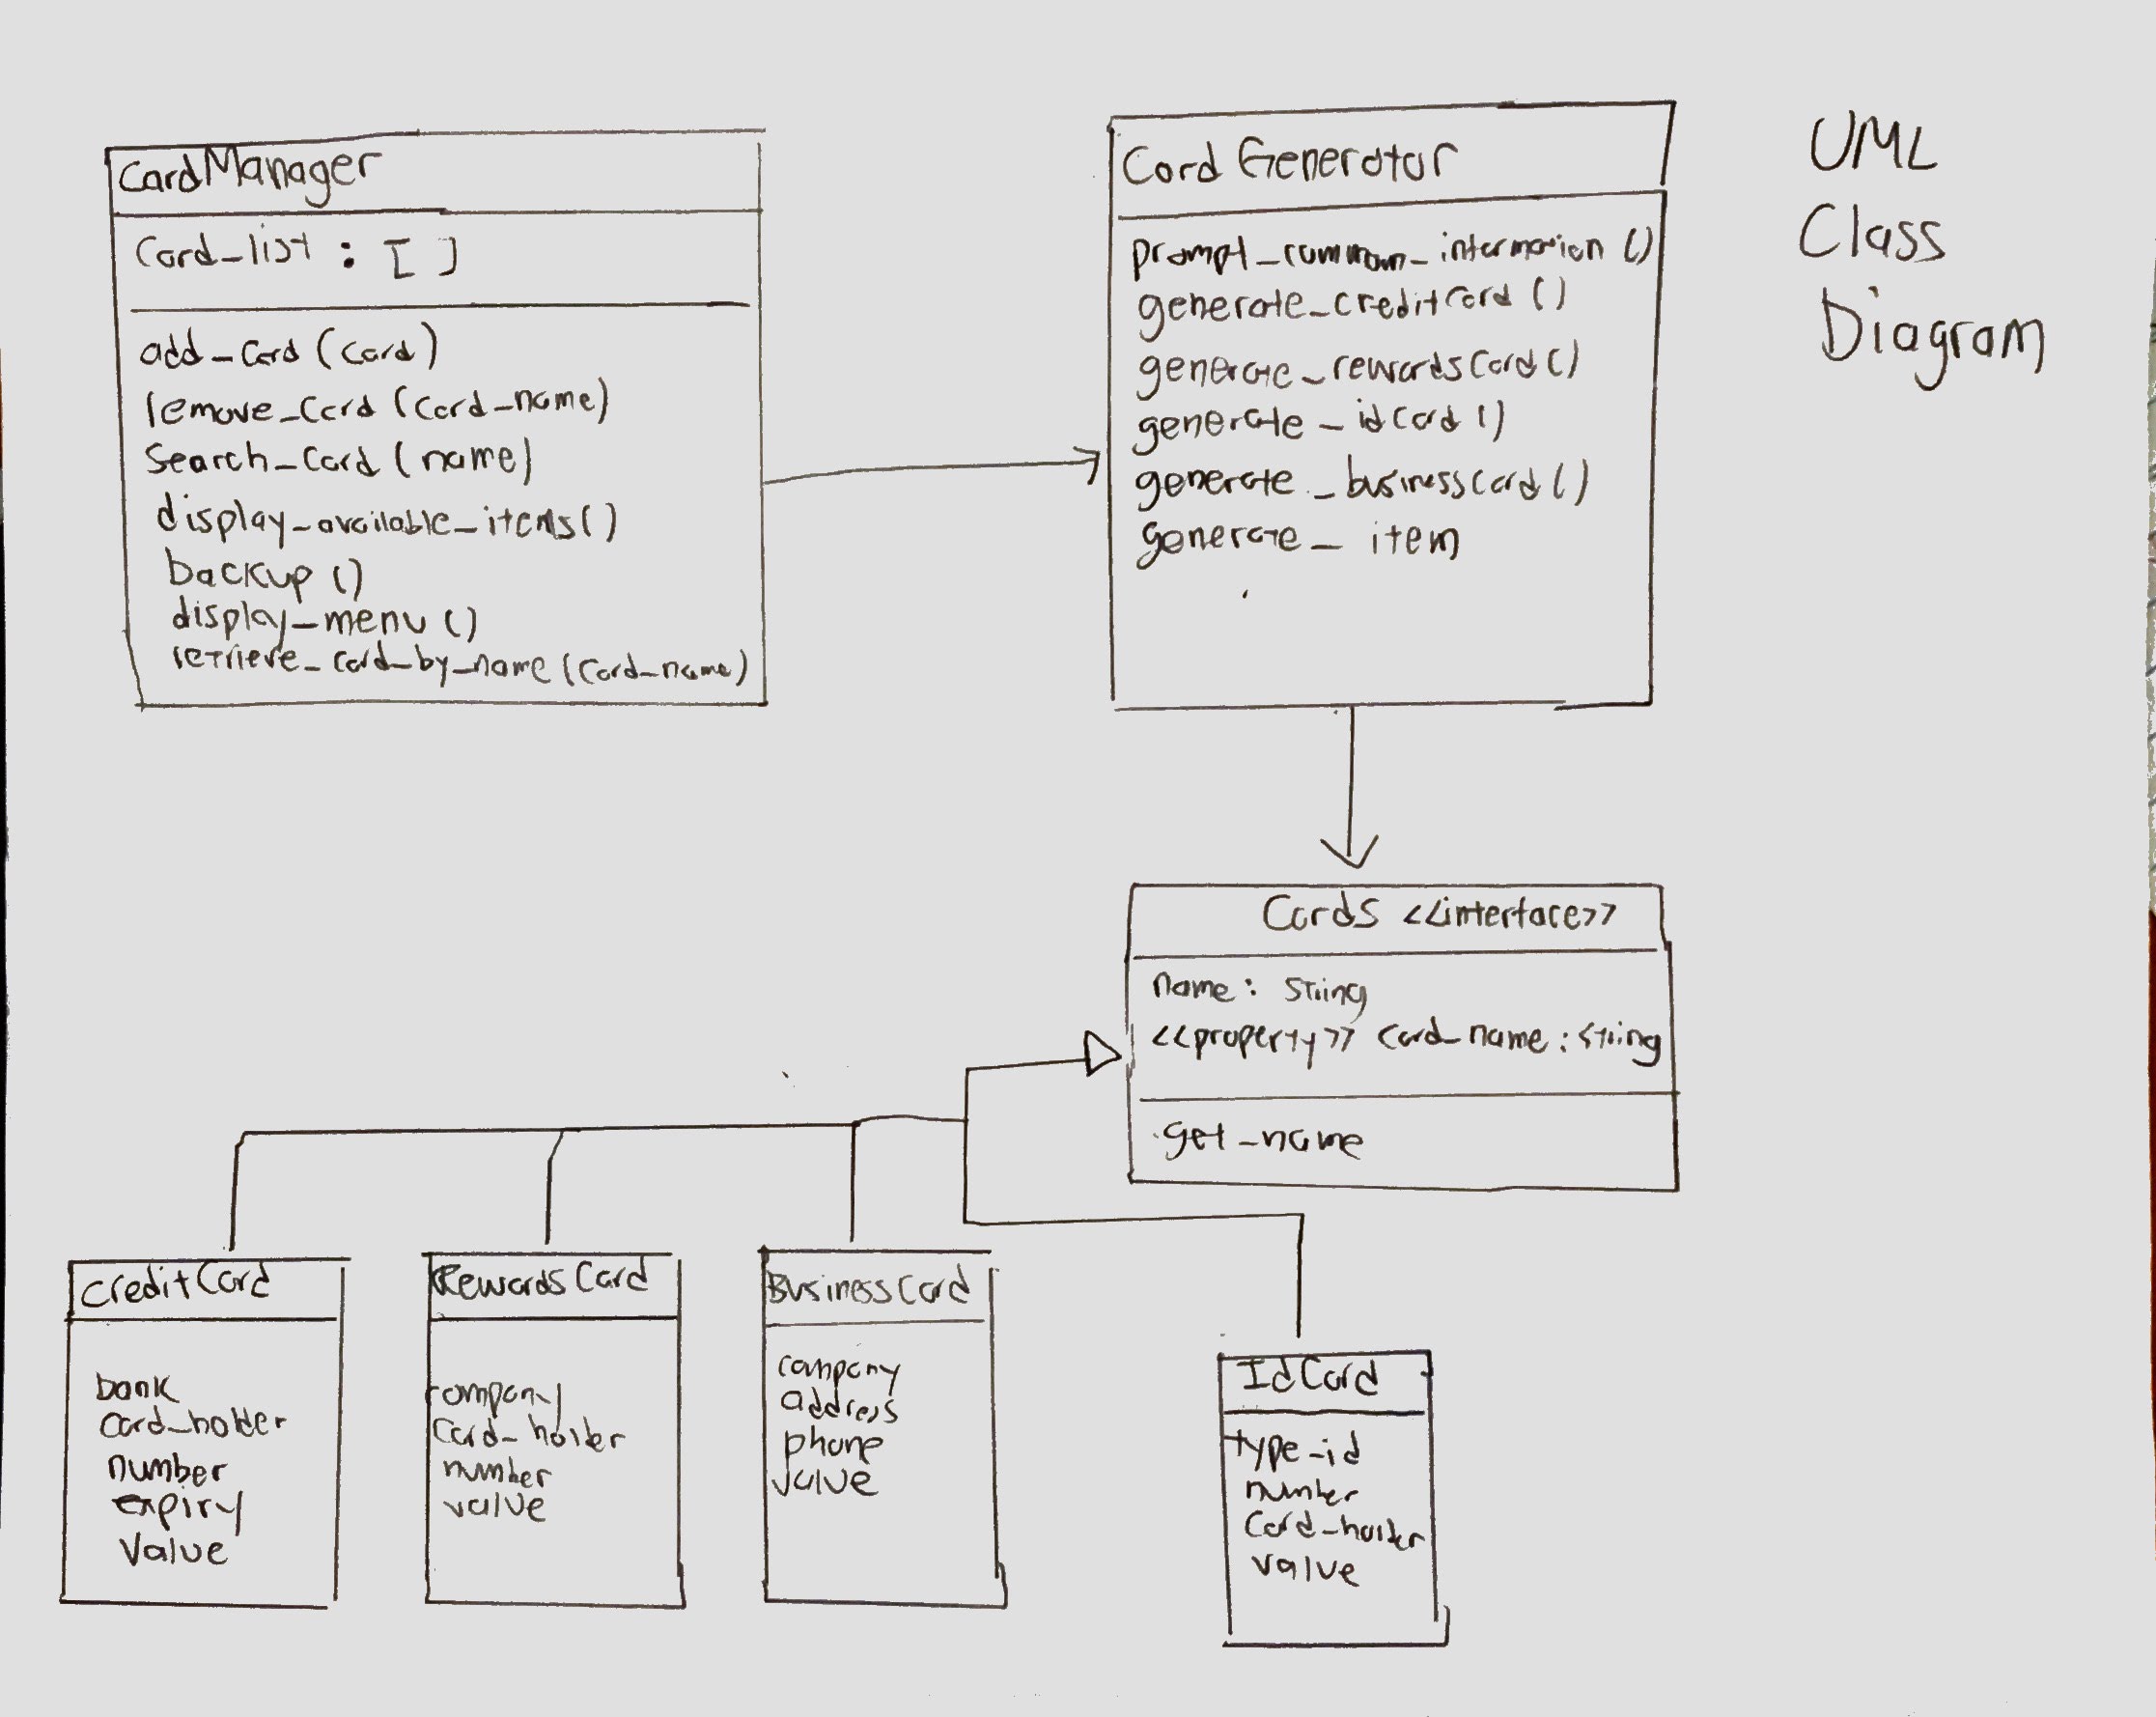 UML
Class
Diagram
CardManager
Card_list : [ ]
add_Card (Card)
remove_Card (Card_name)
Search_Card (name)
display_available_items()
backup ()
display_menu ()
retrieve_card_by_name (Card_name)
Card Generator
prompt_common_information ()
generate_creditCard ()
generate_rewardsCard ()
generate_idCard ()
generate_businessCard ()
generate_ item
Cards <<interface>>
name: String
<<property>> Card_name : String
get_name
CreditCard
bank
Card_holder
number
expiry
Value
RewardsCard
company
Card_holder
number
value
BusinessCard
company
address
phone
value
IdCard
type_id
number
Card_holder
value